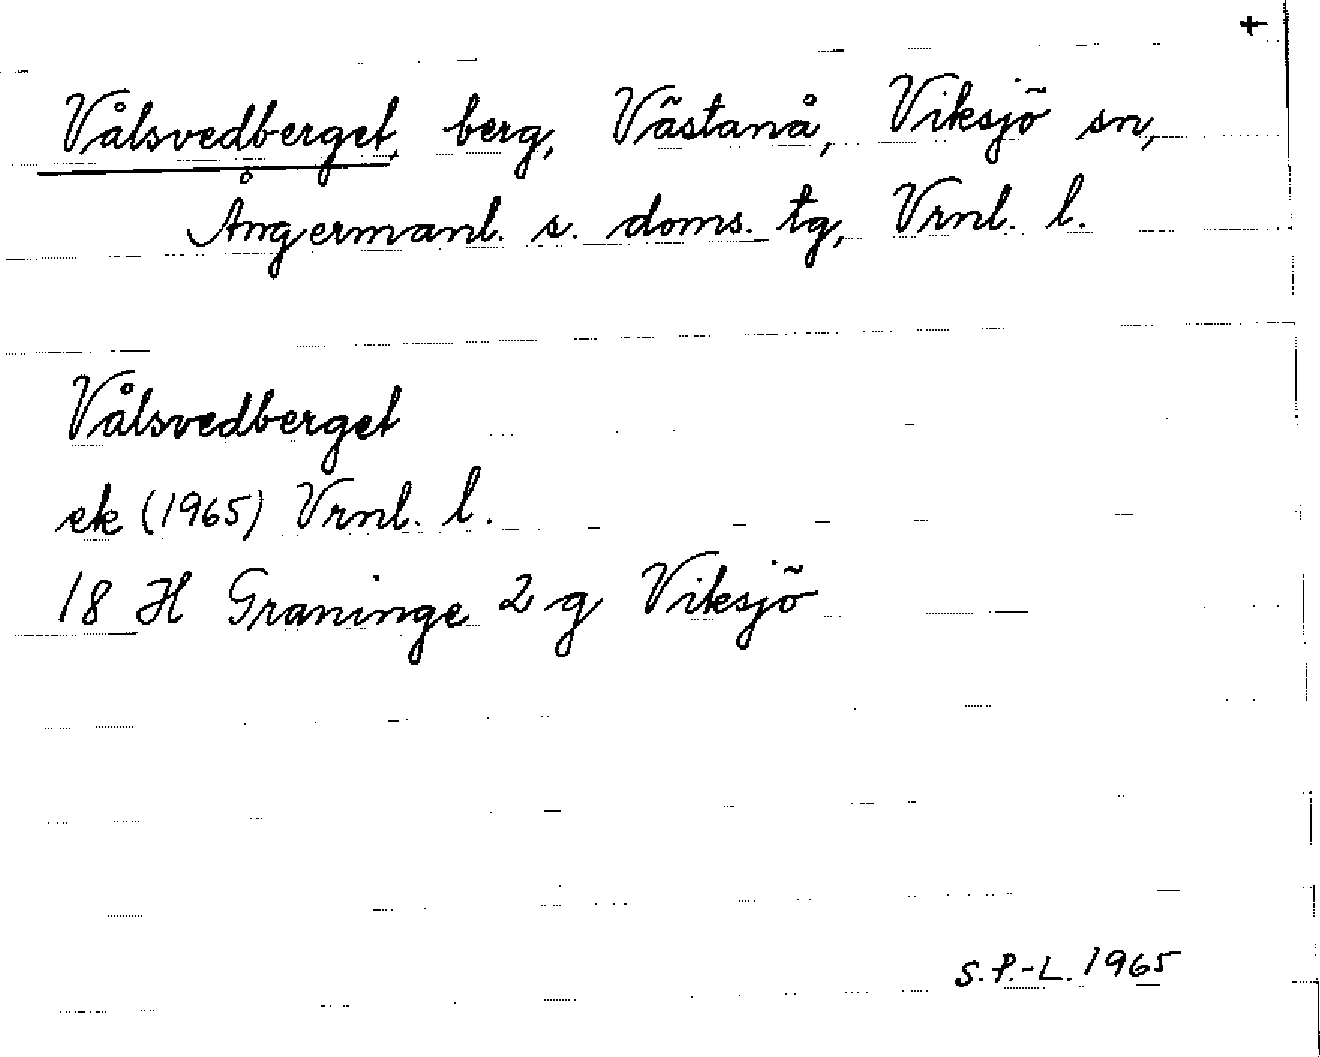 +
Vålsvedberget, berg, Västanå, Viksjö sn,
Ångermanl. s. doms. tg, Vrnl. l.
Vålsvedberget
ek (1965) Vrnl. l.
18 H Graninge 2 g Viksjö
S. P.-L. 1965